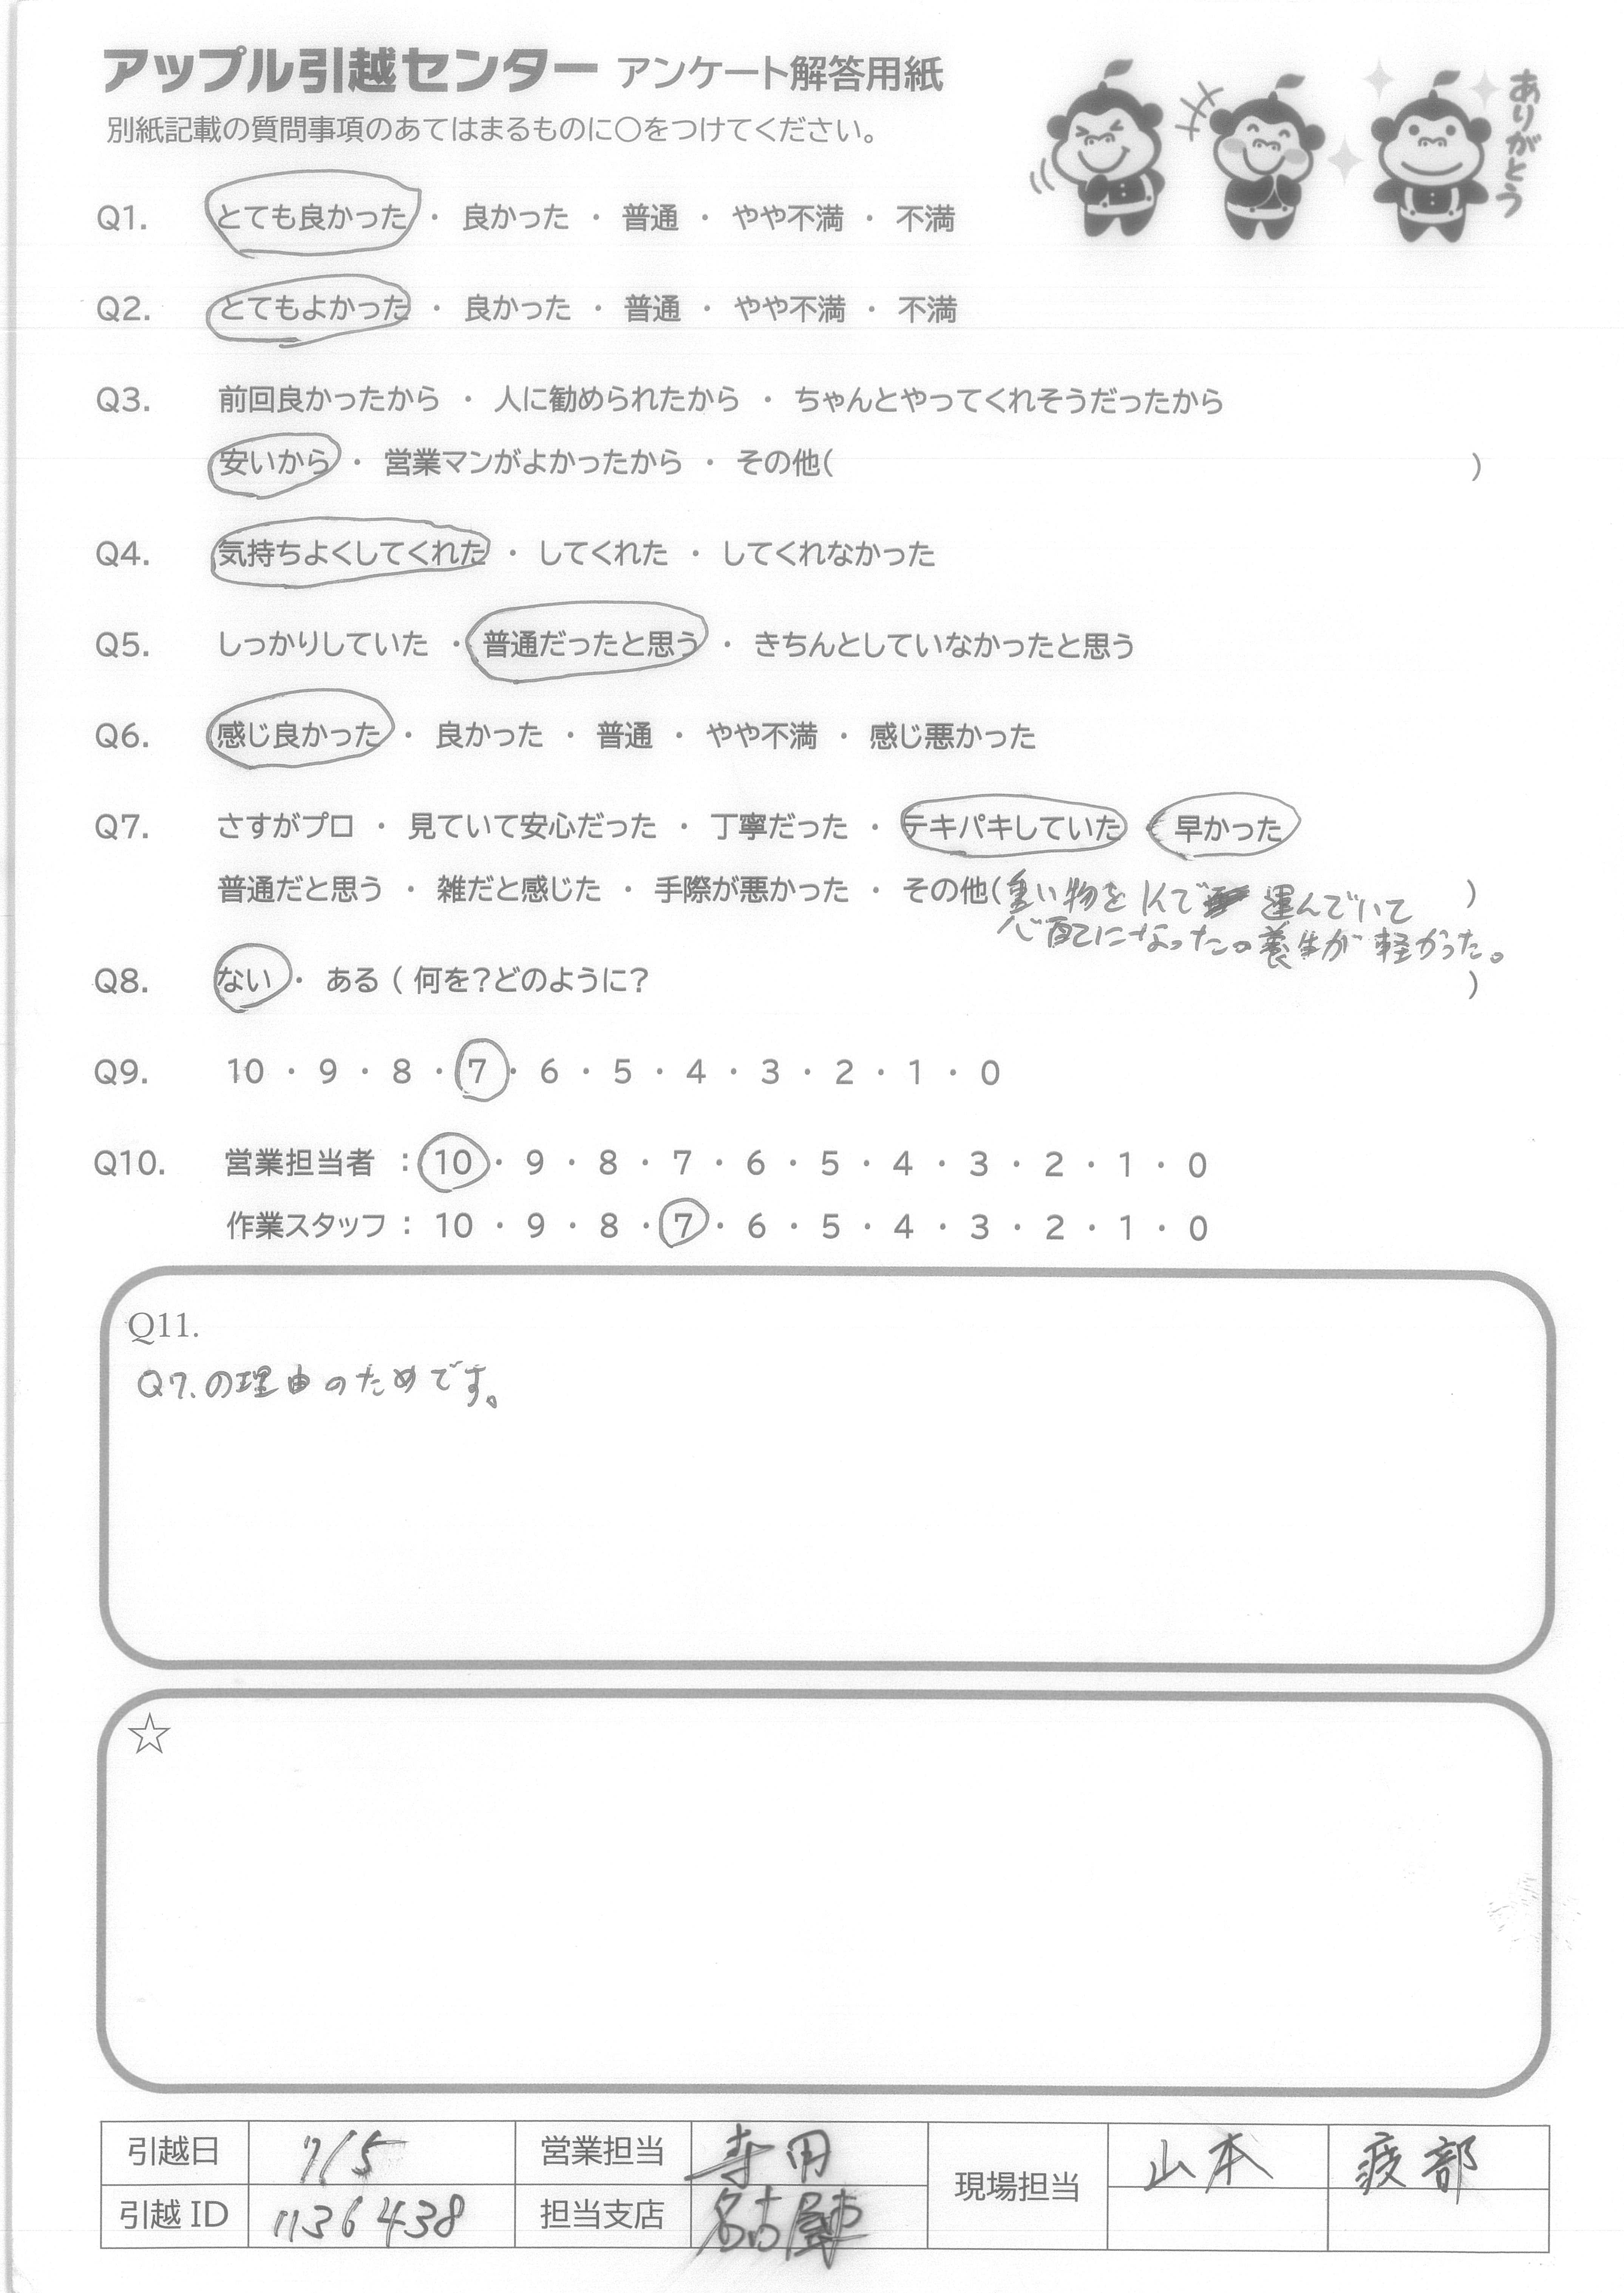 アップル引越センター アンケート解答用紙
別紙記載の質問事項のあてはまるものに○をつけてください。
ありがとう
Q1. とても良かった ・ 良かった ・ 普通 ・ やや不満 ・ 不満
Q2. とてもよかった ・ 良かった ・ 普通 ・ やや不満 ・ 不満
Q3. 前回良かったから ・ 人に勧められたから ・ ちゃんとやってくれそうだったから
安いから ・ 営業マンがよかったから ・ その他( )
Q4. 気持ちよくしてくれた ・ してくれた ・ してくれなかった
Q5. しっかりしていた ・ 普通だったと思う ・ きちんとしていなかったと思う
Q6. 感じ良かった ・ 良かった ・ 普通 ・ やや不満 ・ 感じ悪かった
Q7. さすがプロ ・ 見ていて安心だった ・ 丁寧だった ・ テキパキしていた ・ 早かった
普通だと思う ・ 雑だと感じた ・ 手際が悪かった ・ その他(重い物を1人で 運んでいて )
心配になった。養生が軽かった。
Q8. ない ・ ある ( 何を?どのように? )
Q9. 10 ・ 9 ・ 8 ・ 7 ・ 6 ・ 5 ・ 4 ・ 3 ・ 2 ・ 1 ・ 0
Q10. 営業担当者 : 10 ・ 9 ・ 8 ・ 7 ・ 6 ・ 5 ・ 4 ・ 3 ・ 2 ・ 1 ・ 0
作業スタッフ : 10 ・ 9 ・ 8 ・ 7 ・ 6 ・ 5 ・ 4 ・ 3 ・ 2 ・ 1 ・ 0
Q11.
Q7.の理由のためです。
☆
引越日 7/5 営業担当 現場担当 山本
引越 ID 1136438 担当支店 名古屋